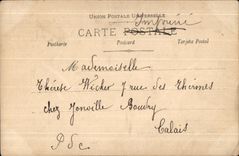 UNION POSTALE UNIVERSELLE
Imprimé
CARTE POSTALE
Postkarte Postcard Tarjeta Postal
Mademoiselle
Thérèse Wicher 7 rue des Thermes
chez Jonville Boudry
Calais
P d C